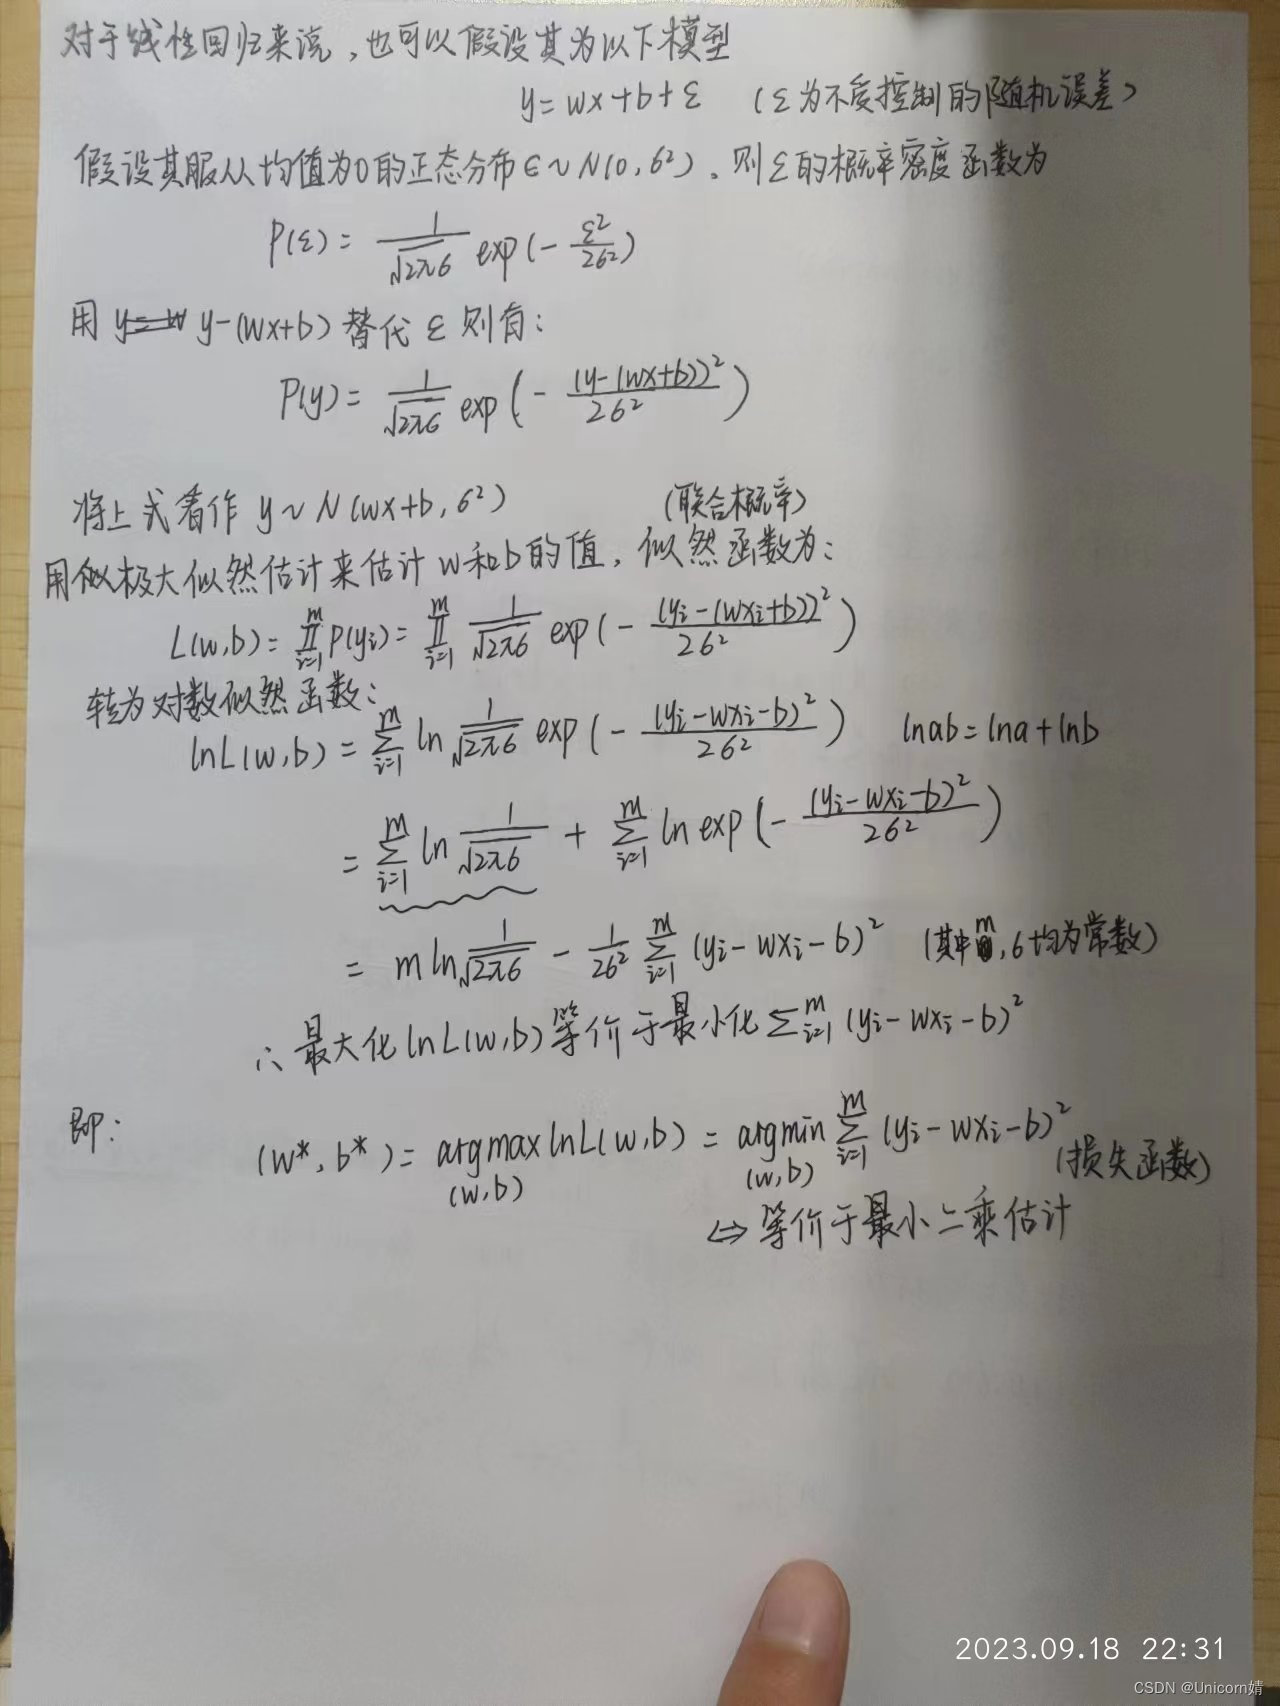 对于线性回归来说，也可以假设其为以下模型
y = wx + b + ε （ε为不受控制的随机误差）
假设其服从均值为0的正态分布 ϵ ~ N(0, σ²)。则ε的概率密度函数为
P(ε) = 1/(√2πσ) exp(- ε²/2σ²)
用 y-(wx+b) 替代 ε 则有：
P(y) = 1/(√2πσ) exp(- (y-(wx+b))²/2σ²)
将上式看作 y ~ N(wx+b, σ²) （联合概率）
用似极大似然估计来估计 w和b的值，似然函数为：
L(w,b) = ∏_{i=1}^{m} P(yi) = ∏_{i=1}^{m} 1/(√2πσ) exp(- (yi-(wxi+b))²/2σ²)
转为对数似然函数：
lnL(w,b) = ∑_{i=1}^{m} ln 1/(√2πσ) exp(- (yi-wxi-b)²/2σ²) lnab = lna + lnb
= ∑_{i=1}^{m} ln 1/(√2πσ) + ∑_{i=1}^{m} ln exp(- (yi-wxi-b)²/2σ²)
= m ln 1/(√2πσ) - 1/2σ² ∑_{i=1}^{m} (yi-wxi-b)² （其中m，σ均为常数）
∴ 最大化 lnL(w,b) 等价于最小化 ∑_{i=1}^{m} (yi-wxi-b)²
即：
(w*, b*) = argmax_{(w,b)} lnL(w,b) = argmin_{(w,b)} ∑_{i=1}^{m} (yi-wxi-b)²
（损失函数）
⇔ 等价于最小二乘估计
2023.09.18 22:31
CSDN @Unicorn婧